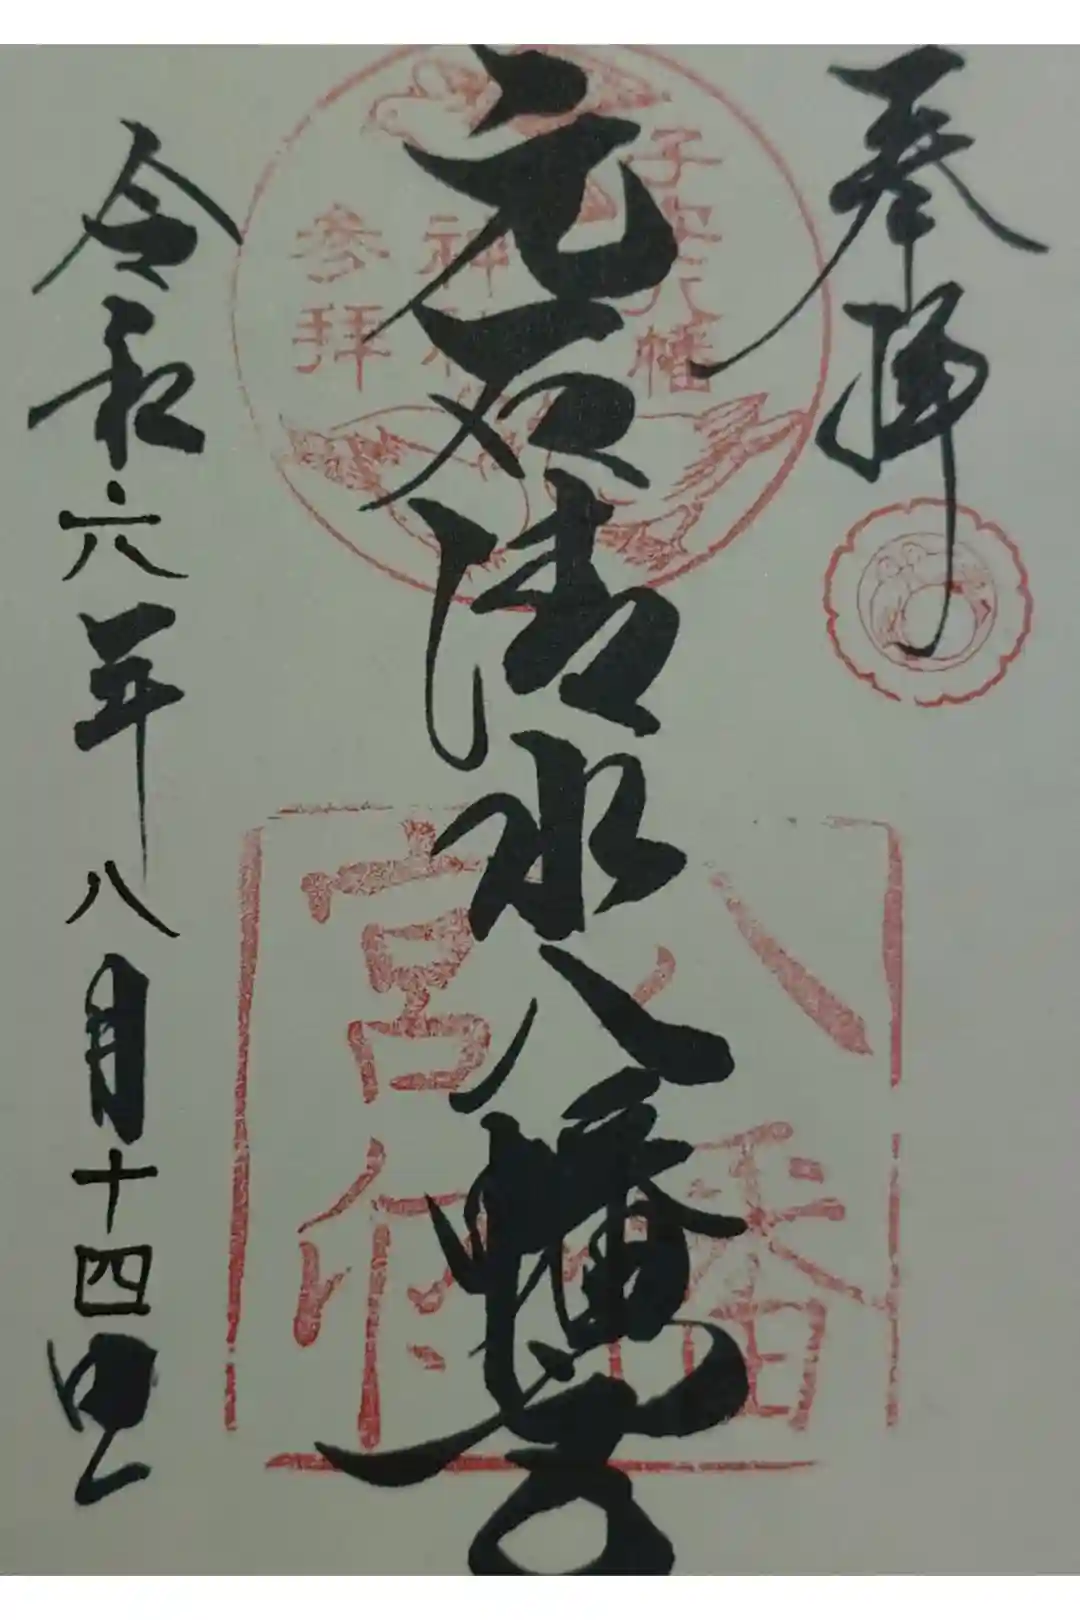 奉拝
元石清水八幡宮
令和六年八月十四日
子安八幡
神社
参拝
八幡
宮印